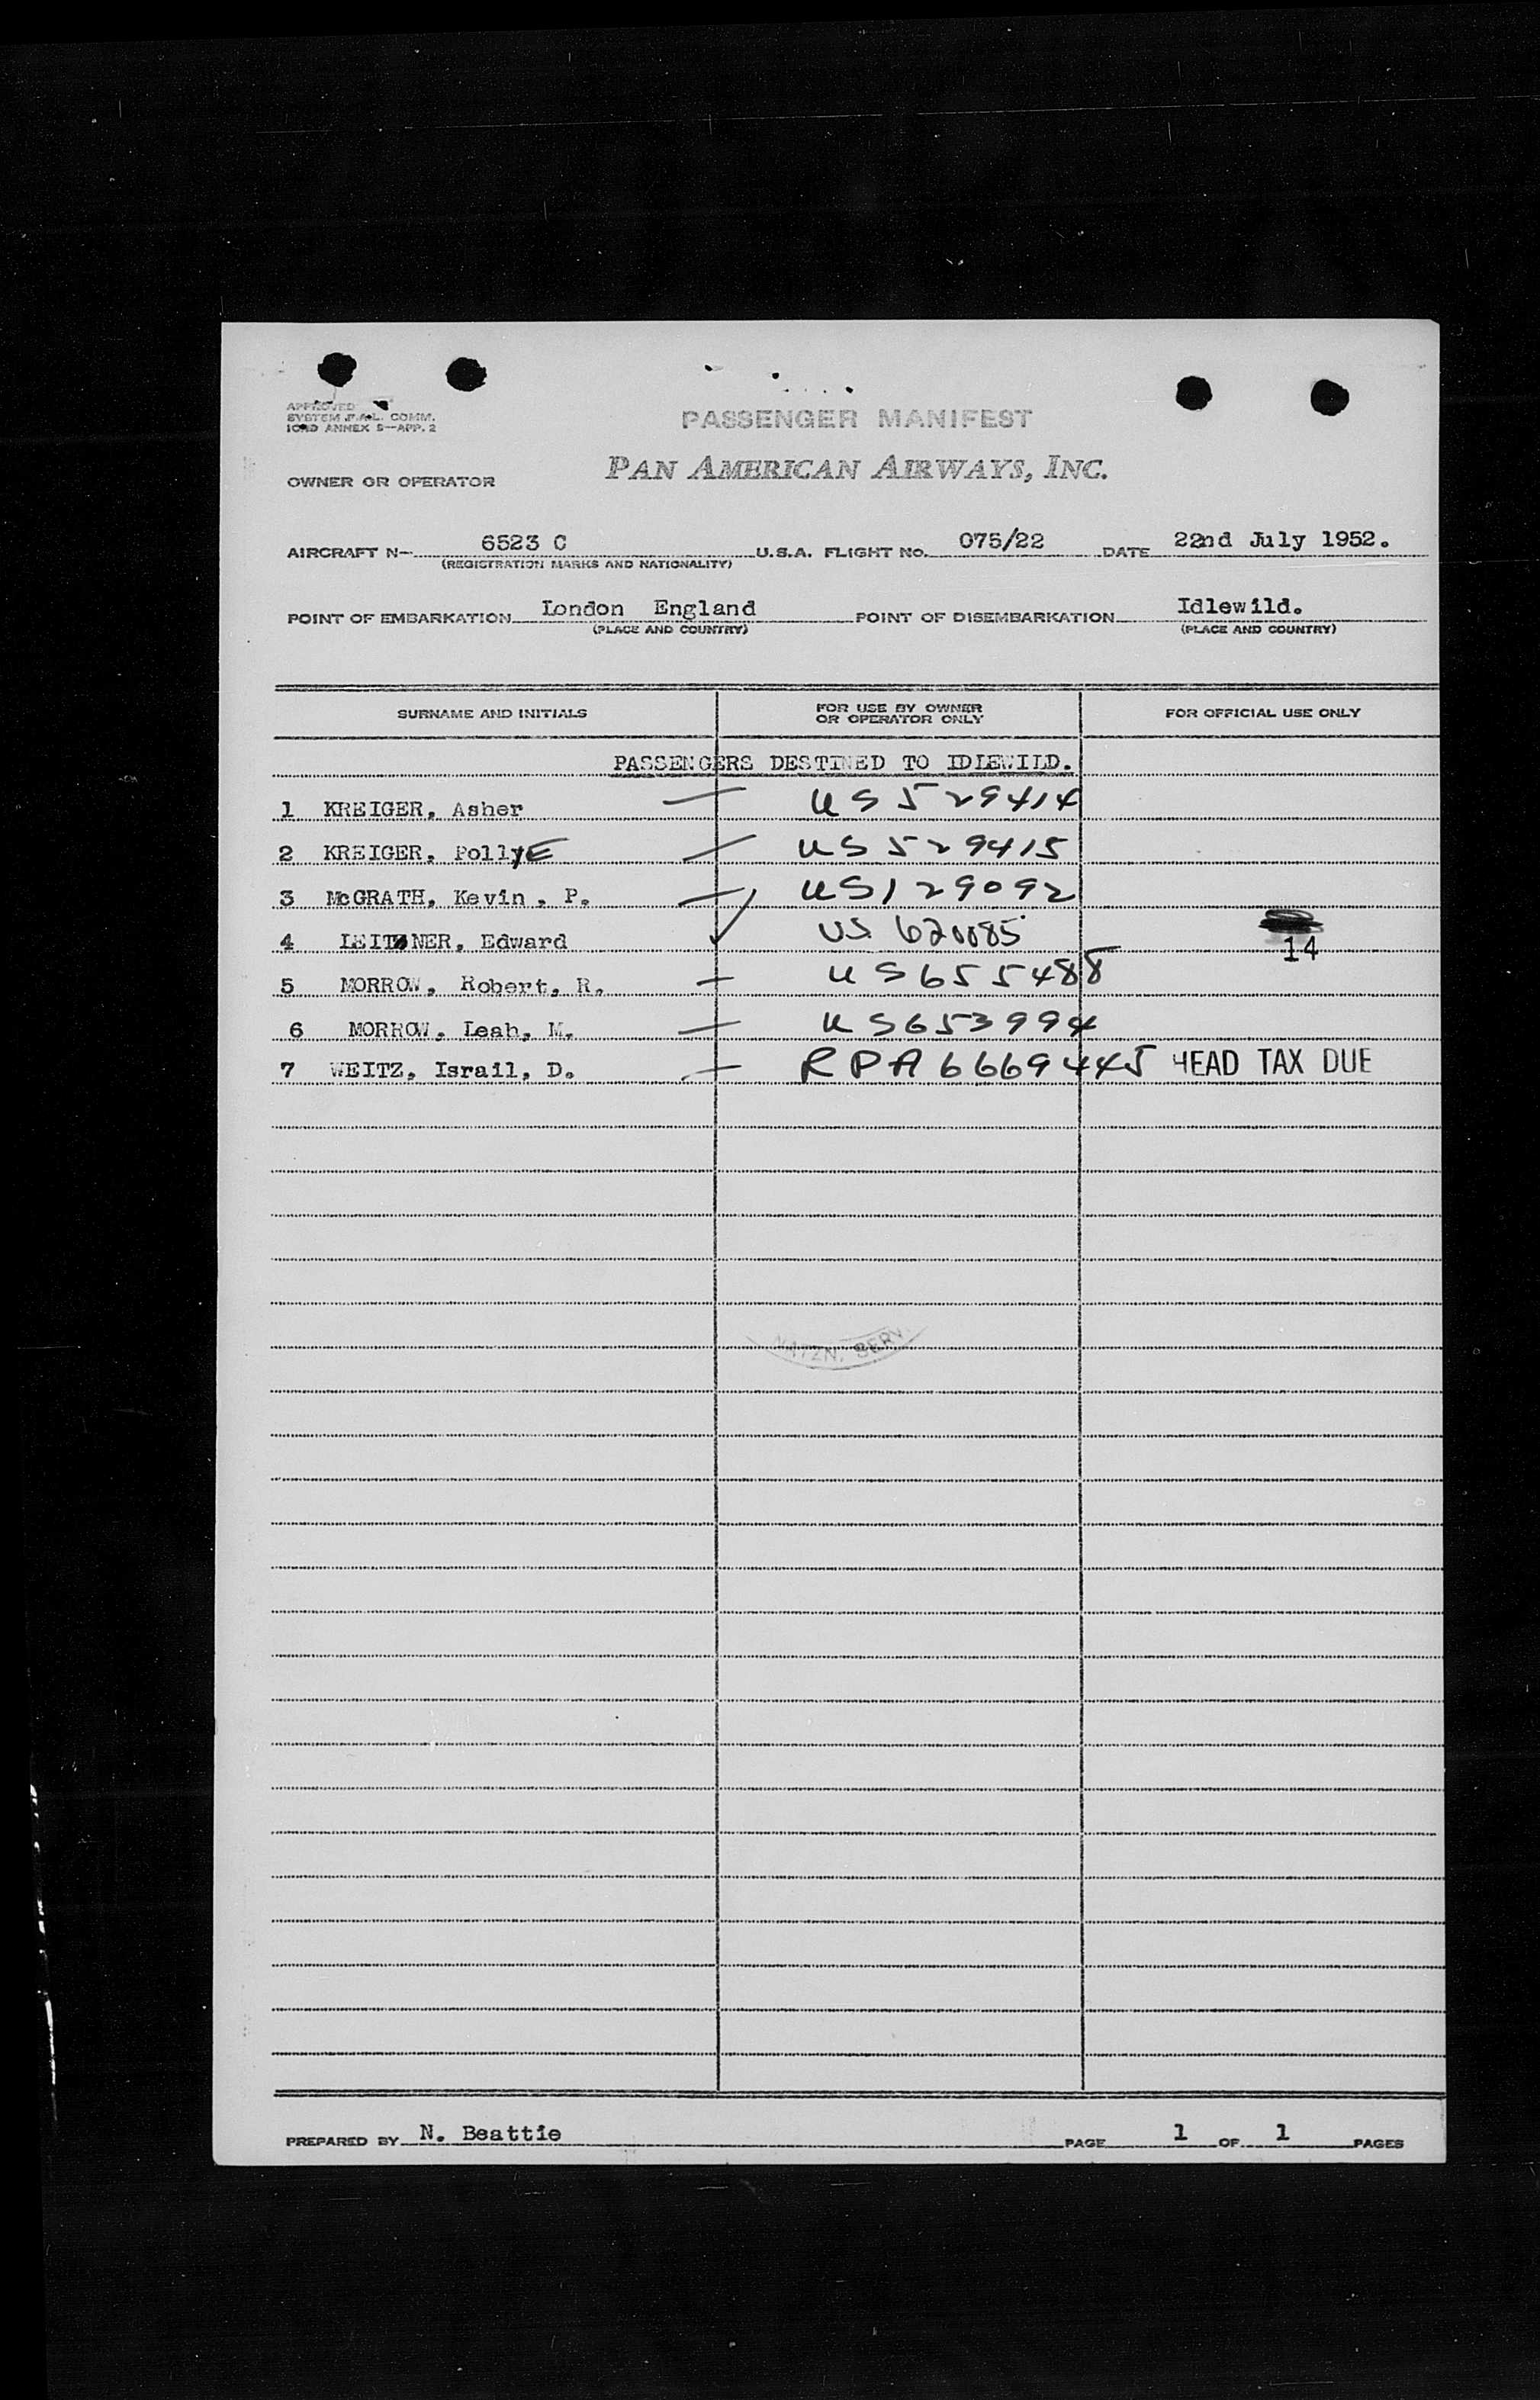 APPROVED
SYSTEM F.A.L. COMM.
ICAO ANNEX 9—APP. 2
PASSENGER MANIFEST
OWNER OR OPERATOR PAN AMERICAN AIRWAYS, INC.
AIRCRAFT N- 6523 C U.S.A. FLIGHT NO. 075/22 DATE 22nd July 1952.
(REGISTRATION MARKS AND NATIONALITY)
POINT OF EMBARKATION London England POINT OF DISEMBARKATION Idlewild.
(PLACE AND COUNTRY) (PLACE AND COUNTRY)
SURNAME AND INITIALS FOR USE BY OWNER OR OPERATOR ONLY FOR OFFICIAL USE ONLY
PASSENGERS DESTINED TO IDLEWILD.
1 KREIGER, Asher — US529414
2 KREIGER, PollyE — US529415
3 McGRATH, Kevin, P. — US129092
4 LEITNER, Edward ✓ US 620085 14
5 MORROW, Robert, R. — US655488
6 MORROW, Leah, M. — US653994
7 WEITZ, Israil, D. — RPA6669445 HEAD TAX DUE
NATZN. SERV.
PREPARED BY N. Beattie PAGE 1 OF 1 PAGES